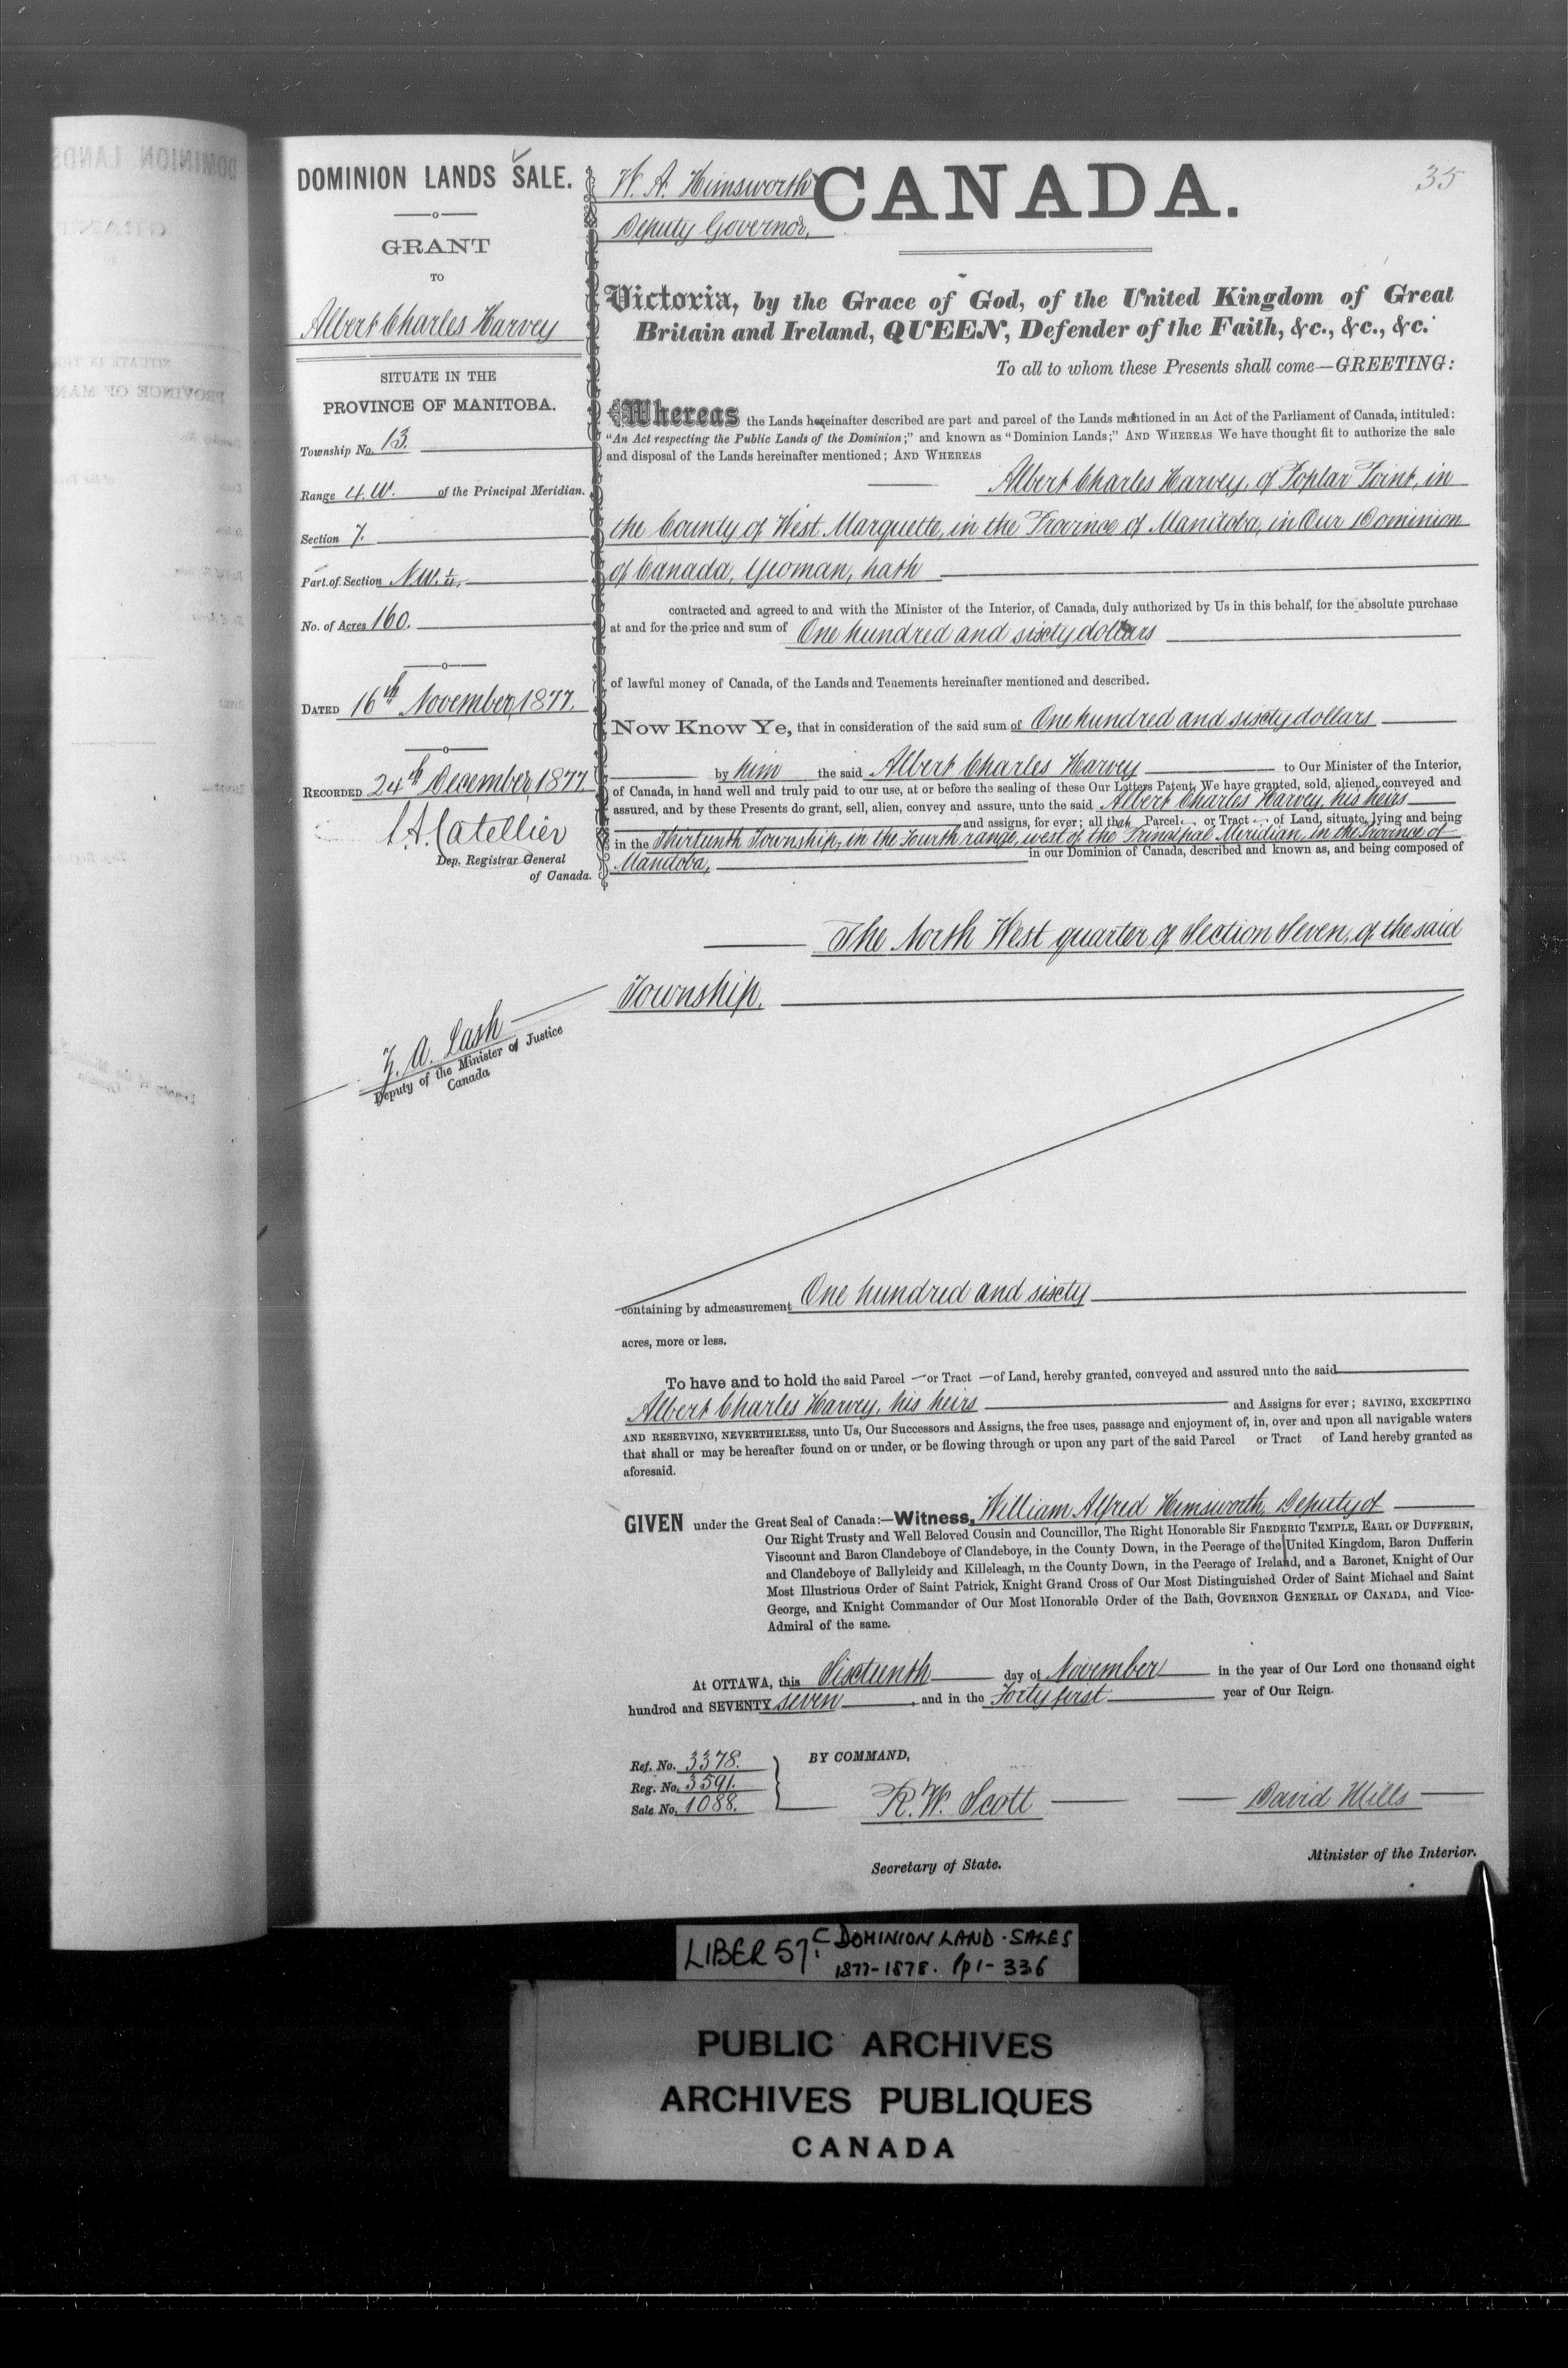 DOMINION LANDS SALE.
GRANT
TO
Albert Charles Harvey
SITUATE IN THE
PROVINCE OF MANITOBA.
Township No. 13.
Range 4. W. of the Principal Meridian.
Section 7.
Part of Section N.W. ¼.
No. of Acres 160.
DATED 16th November, 1877.
RECORDED 24th December, 1877.
L. A. Catellier
Dep. Registrar General
of Canada.
Z. A. Lash
Deputy of the Minister of Justice
Canada
W. A. Himsworth
Deputy Governor,
CANADA.
35
Victoria, by the Grace of God, of the United Kingdom of Great
Britain and Ireland, QUEEN, Defender of the Faith, &c., &c., &c.
To all to whom these Presents shall come—GREETING:
Whereas the Lands hereinafter described are part and parcel of the Lands mentioned in an Act of the Parliament of Canada, intituled:
"An Act respecting the Public Lands of the Dominion;" and known as "Dominion Lands;" AND WHEREAS We have thought fit to authorize the sale
and disposal of the Lands hereinafter mentioned; AND WHEREAS
Albert Charles Harvey, of Poplar Point, in
the County of West Marquette, in the Province of Manitoba, in Our Dominion
of Canada, Yeoman, hath
contracted and agreed to and with the Minister of the Interior, of Canada, duly authorized by Us in this behalf, for the absolute purchase
at and for the price and sum of One hundred and sixty dollars
of lawful money of Canada, of the Lands and Tenements hereinafter mentioned and described.
Now Know Ye, that in consideration of the said sum of One hundred and sixty dollars
by him the said Albert Charles Harvey to Our Minister of the Interior,
of Canada, in hand well and truly paid to our use, at or before the sealing of these Our Letters Patent, We have granted, sold, aliened, conveyed and
assured, and by these Presents do grant, sell, alien, convey and assure, unto the said Albert Charles Harvey, his heirs
and assigns, for ever; all that Parcel or Tract of Land, situate, lying and being
in the Thirteenth Township, in the Fourth range, west of the Principal Meridian, in the Province of
Manitoba, in our Dominion of Canada, described and known as, and being composed of
The North West quarter of Section Seven, of the said
Township.
containing by admeasurement One hundred and sixty
acres, more or less.
To have and to hold the said Parcel — or Tract — of Land, hereby granted, conveyed and assured unto the said
Albert Charles Harvey, his heirs and Assigns for ever; SAVING, EXCEPTING
AND RESERVING, NEVERTHELESS, unto Us, Our Successors and Assigns, the free uses, passage and enjoyment of, in, over and upon all navigable waters
that shall or may be hereafter found on or under, or be flowing through or upon any part of the said Parcel or Tract of Land hereby granted as
aforesaid.
GIVEN under the Great Seal of Canada:—Witness, William Alfred Himsworth, Deputy of
Our Right Trusty and Well Beloved Cousin and Councillor, The Right Honorable Sir FREDERIC TEMPLE, EARL OF DUFFERIN,
Viscount and Baron Clandeboye of Clandeboye, in the County Down, in the Peerage of the United Kingdom, Baron Dufferin
and Clandeboye of Ballyleidy and Killeleagh, in the County Down, in the Peerage of Ireland, and a Baronet, Knight of Our
Most Illustrious Order of Saint Patrick, Knight Grand Cross of Our Most Distinguished Order of Saint Michael and Saint
George, and Knight Commander of Our Most Honorable Order of the Bath, GOVERNOR GENERAL OF CANADA, and Vice-
Admiral of the same.
At OTTAWA, this Sixteenth day of November in the year of Our Lord one thousand eight
hundred and SEVENTY seven, and in the Forty first year of Our Reign.
Ref. No. 3378.
Reg. No. 3591.
Sale No. 1088.
BY COMMAND,
R. W. Scott
Secretary of State.
David Mills
Minister of the Interior.
LIBER 57C DOMINION LAND-SALES
1877-1878. pp 1-336
PUBLIC ARCHIVES
ARCHIVES PUBLIQUES
CANADA